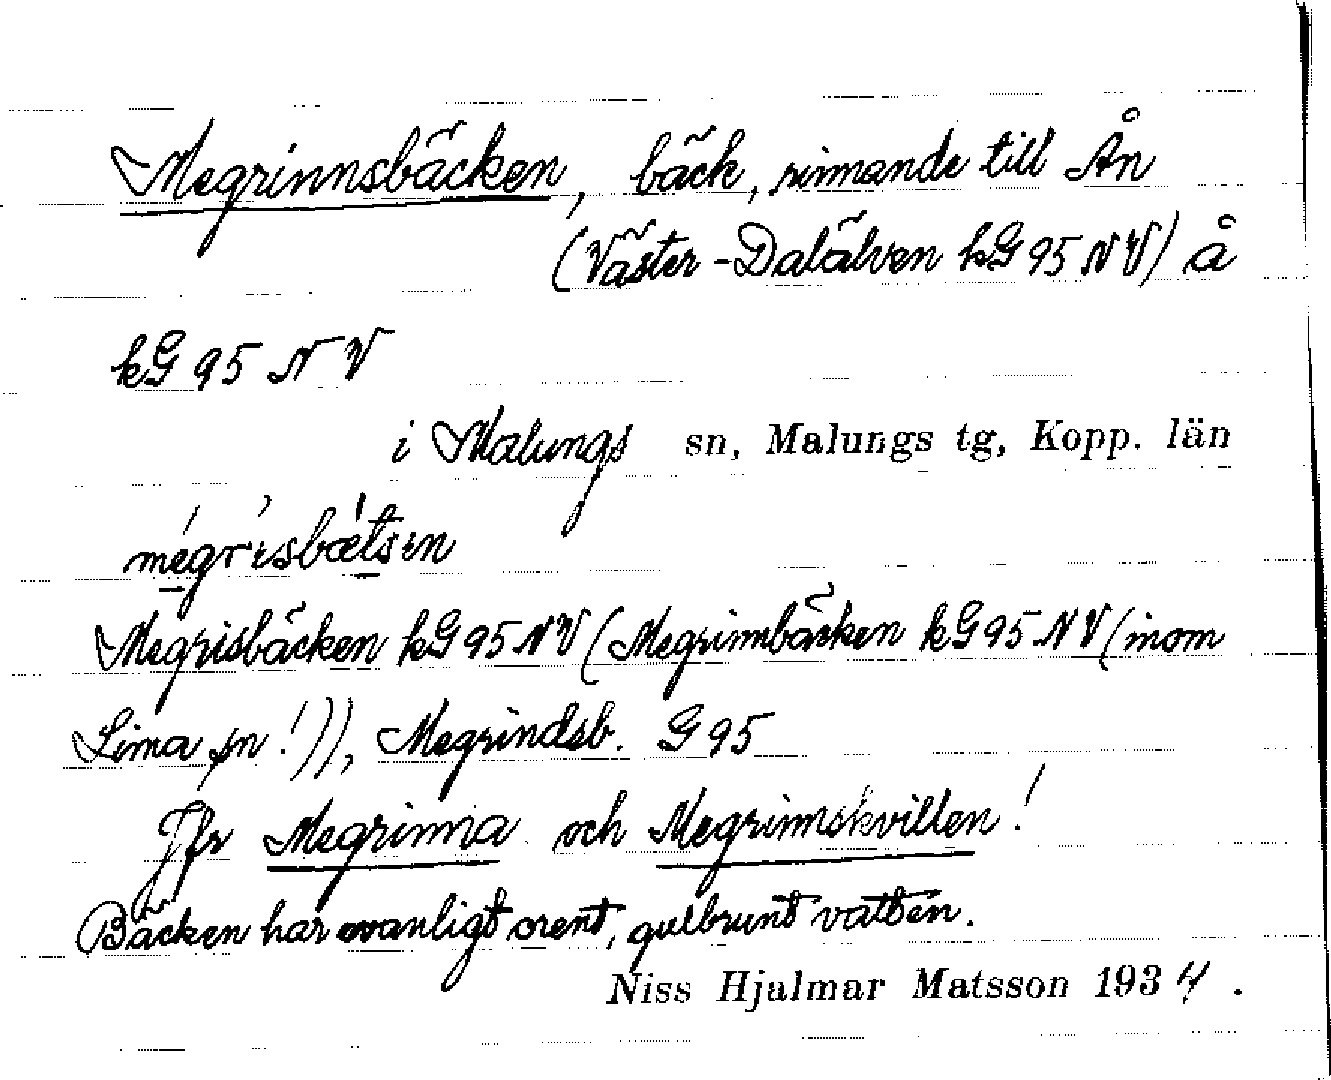 Megrinnsbäcken, bäck, rinnande till Ån
(Väster-Dalälven kG 95 NV) å
kG 95 NV
i Malungs sn, Malungs tg, Kopp. län
Megrisbäcken kG 95 NV (Megrinnsbäcken kG 95 NV (inom
Lima sn!)), Megrindsb. G 95
Jfr Megrinna och Megrinnskvillen!
Bäcken har ovanligt orent, gulbrunt vatten.
Niss Hjalmar Matsson 1934.